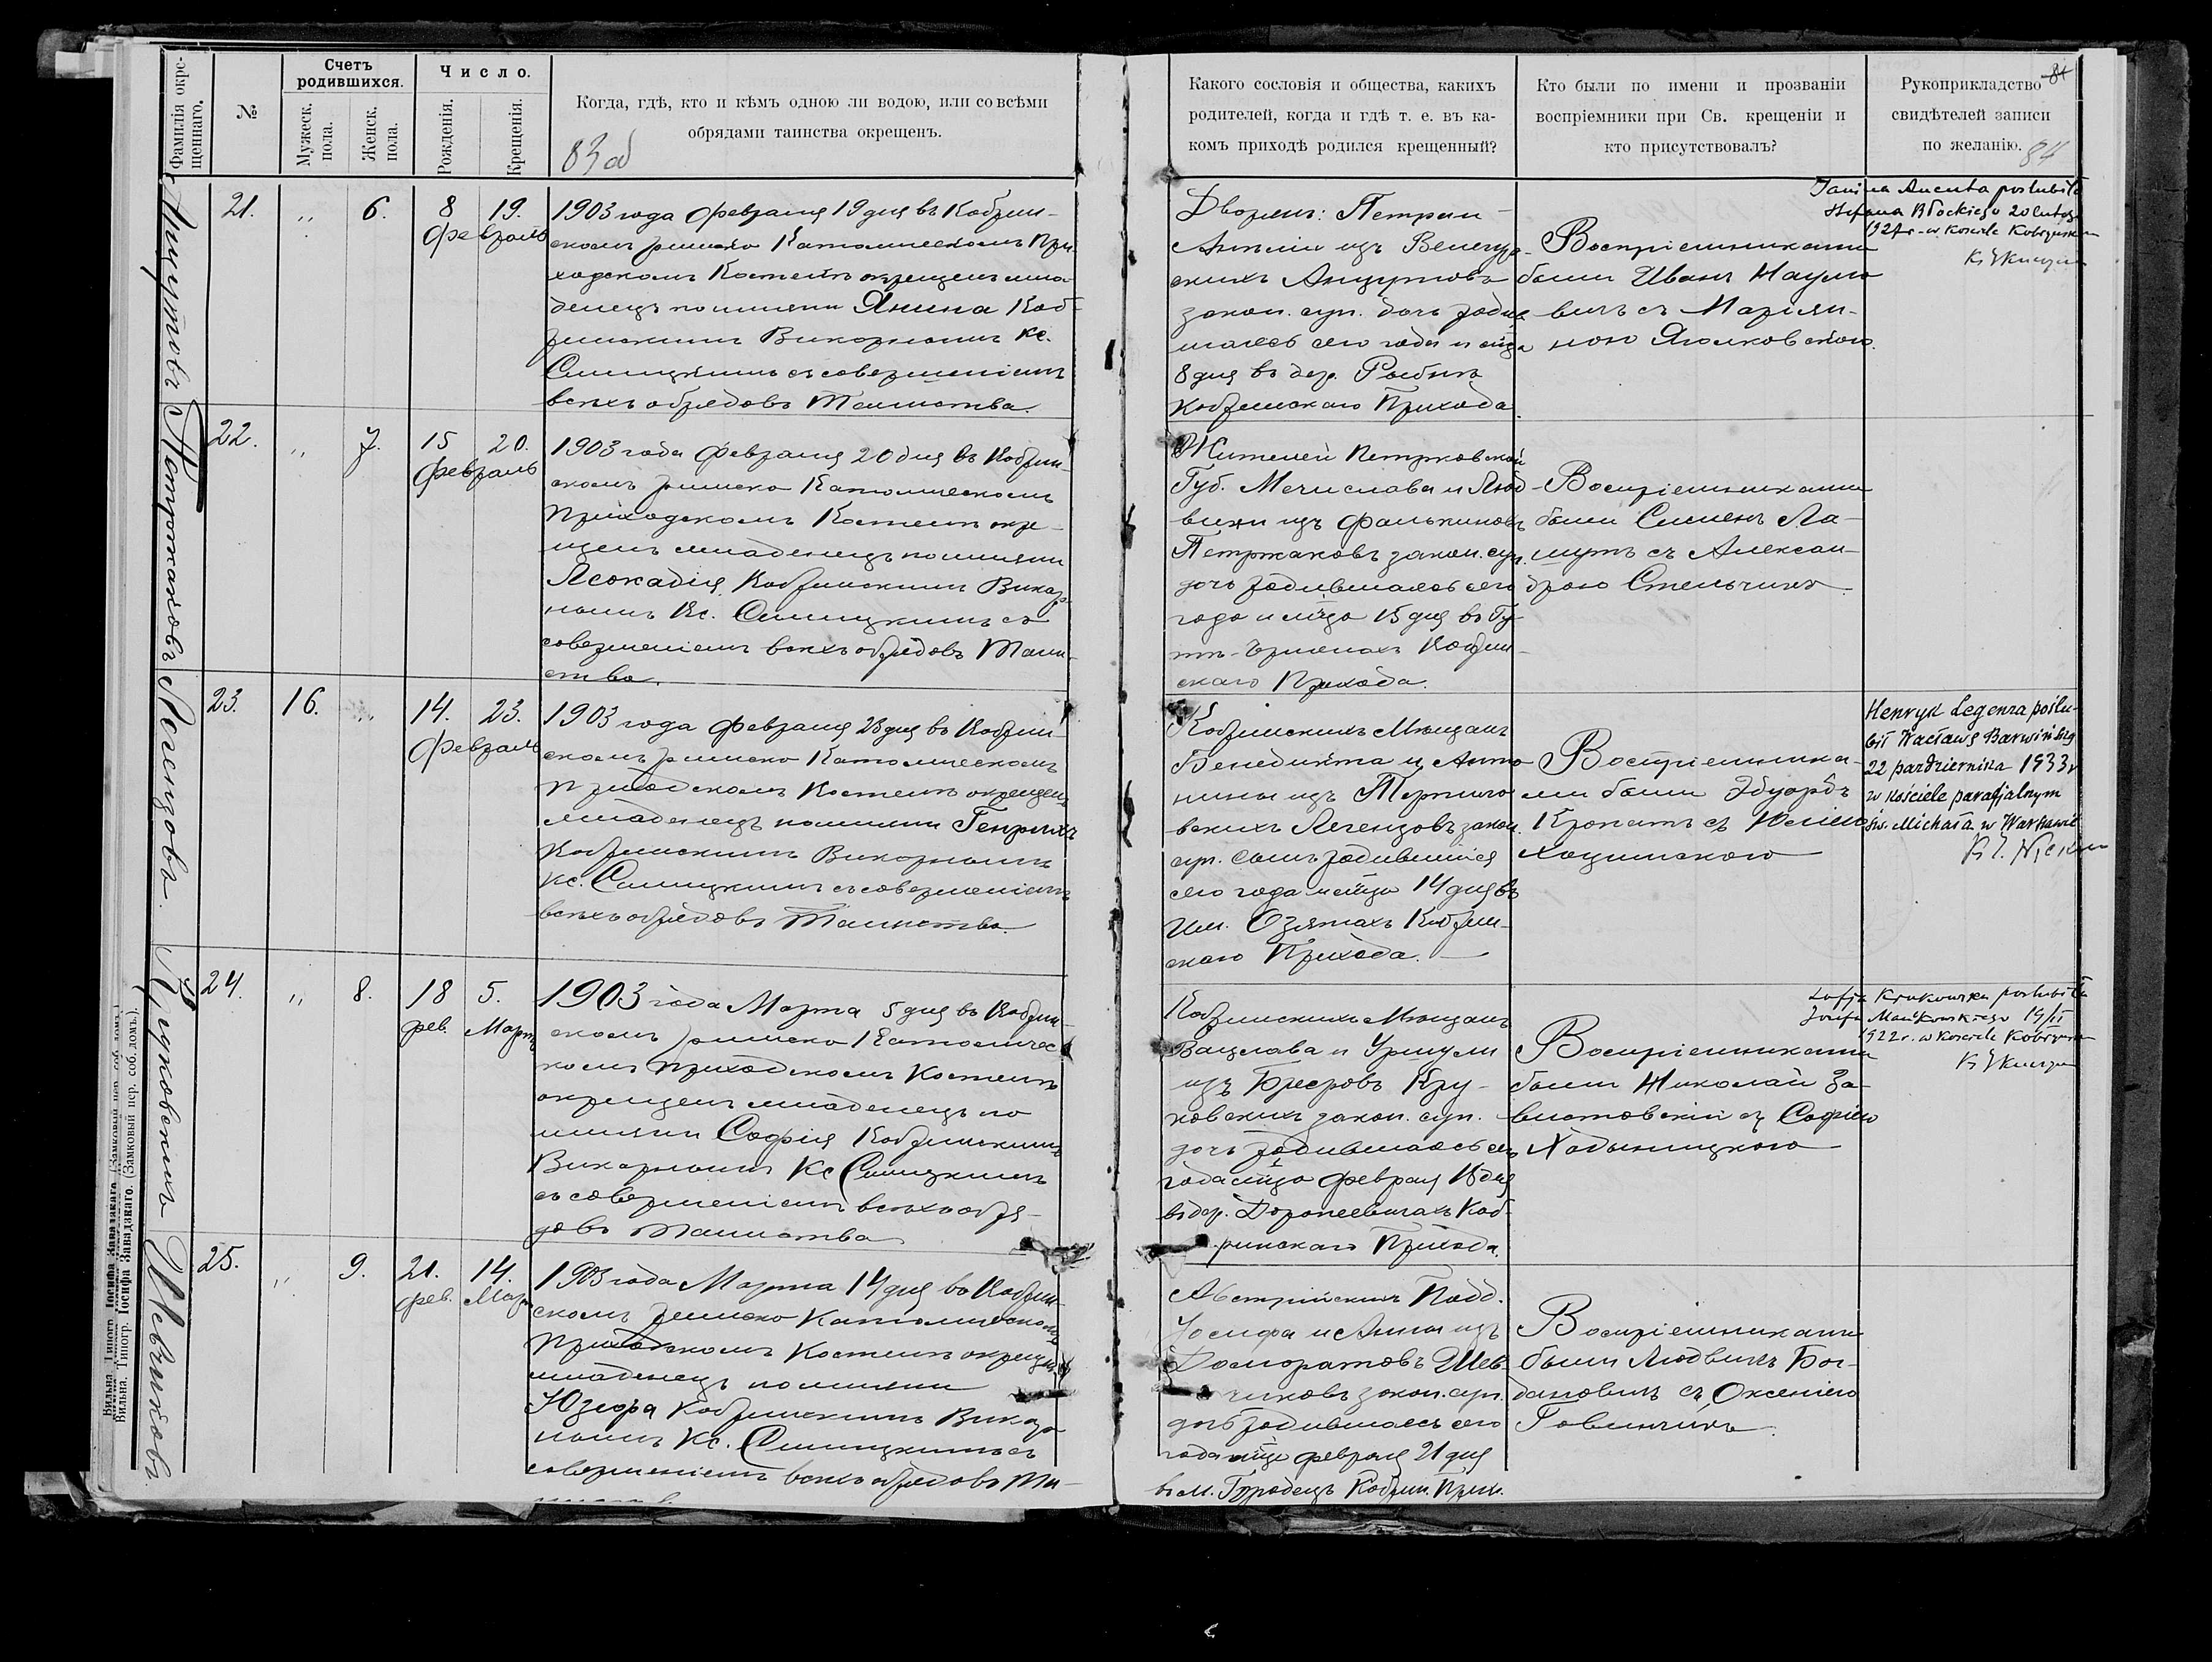 Фамилія окре-
щеннаго.
№
Счетъ
родившихся.
Мужеск.
пола.
Женск.
пола.
Число.
Рожденія.
Крещенія.
Когда, гдѣ, кто и кѣмъ одною ли водою, или со всѣми
обрядами таинства окрещенъ.
83 об
Анцутовъ
21.
„
6.
8
19.
февраль
1903 года февраля 19 дня въ Кобрин-
скомъ римско Католическомъ При-
ходскомъ Костелѣ окрещенъ мла-
денецъ по имени Янина Коб-
ринскимъ Викарнымъ Кс.
съ совершеніемъ
всѣхъ обрядовъ Таинства.
Петржаковъ
22.
„
7.
15
20.
февраль
1903 года февраля 20 дня въ Кобрин-
скомъ римско Католическомъ
Приходскомъ Костелѣ окре-
щенъ младенецъ по имени
Леокадія Кобринскимъ Викар-
нымъ Кс. съ
совершеніемъ всѣхъ обрядовъ Таин-
ства.
Легенцовъ
23.
16.
„
14.
23.
февраль
1903 года февраля 23 дня въ Кобрин-
скомъ римско Католическомъ
Приходскомъ Костелѣ окрещенъ
младенецъ по имени Генрихъ
Кобринскимъ Викарнымъ
Кс. съ совершеніемъ
всѣхъ обрядовъ Таинства.
Круковскихъ
24.
„
8.
18
5.
фев.
Мартъ
1903 года Марта 5 дня въ Кобрин-
скомъ римско Католичес-
комъ Приходскомъ Костелѣ
окрещенъ младенецъ по
имени Софія Кобринскимъ
Викарнымъ Кс
съ совершеніемъ всѣхъ обря-
довъ Таинства
Шевчиковъ
25.
„
9.
21.
14.
фев.
Мар.
1903 года Марта 14 дня въ Кобрин-
скомъ римско Католическомъ
Приходскомъ Костелѣ окрещенъ
младенецъ по имени
Юзефа Кобринскимъ Викар-
нымъ Кс. съ
совершеніемъ всѣхъ обрядовъ Та-
Вильна. Типогр. Іосифа Завадзкаго. (Замковый пер. соб. домъ.).
Какого сословія и общества, какихъ
родителей, когда и гдѣ т. е. въ ка-
комъ приходѣ родился крещенный?
Кто были по имени и прозванію
воспріемники при Св. крещеніи и
кто присутствовалъ?
Рукоприкладство
свидѣтелей записи
по желанію.
84
84
Дворянъ:
изъ
скихъ Анцутовъ
закон. суп. дочь родив-
шаяся сего года и м-ца
8 дня въ дер.
Кобринскаго Прихода.
Воспріемниками
были Иванъ Наумо-
вичъ съ Маріян-
ною
Janina Ancuta poślubiła
Stefana Błockiego 20 lutego
1927 r. w Kościele Kobryńskim
Жителей Петрковской
Губ. Мечислава и Люд-
вики изъ
Петржаковъ закон. суп.
дочь родившаяся сего
года и м-ца 15 дня въ
Кобрин-
скаго Прихода.
Воспріемниками
были
съ Алексан-
дрою
Кобринскихъ Мѣщанъ
Бенедикта и Анто-
нины изъ
Легенцовъ закон.
суп. сынъ родившійся
сего года м-ца 14 дня въ
Им. Озятахъ Кобрин-
скаго Прихода.
Воспріемника-
ми были Эдуардъ
съ
Henryk Legenza poślu-
bił Wacławę Barwińską
22 października 1933 r
w kościele parafjalnym
św. Michała w Warszawie
Кобринскихъ Мѣщанъ
Вацлава и Уршули
изъ Кру-
ковскихъ закон. суп.
дочь родившаяся сего
года м-ца февраля 18 дня
въ дер. Коб-
ринскаго Прихода.
Воспріемниками
были Николай За-
съ Софіею
Zofja Krukowska poślubiła
Józefa
1922 r. w Kościele Kobryńskim
Австрійскихъ Подд.
Іосифа и Анны изъ
Шев-
чиковъ закон. суп.
дочь родившаяся сего
года м-ца февраля 21 дня
въ м. Городецъ Кобрин. Прих.
Воспріемниками
были Людвикъ Бог-
дановичъ съ Оксеніею